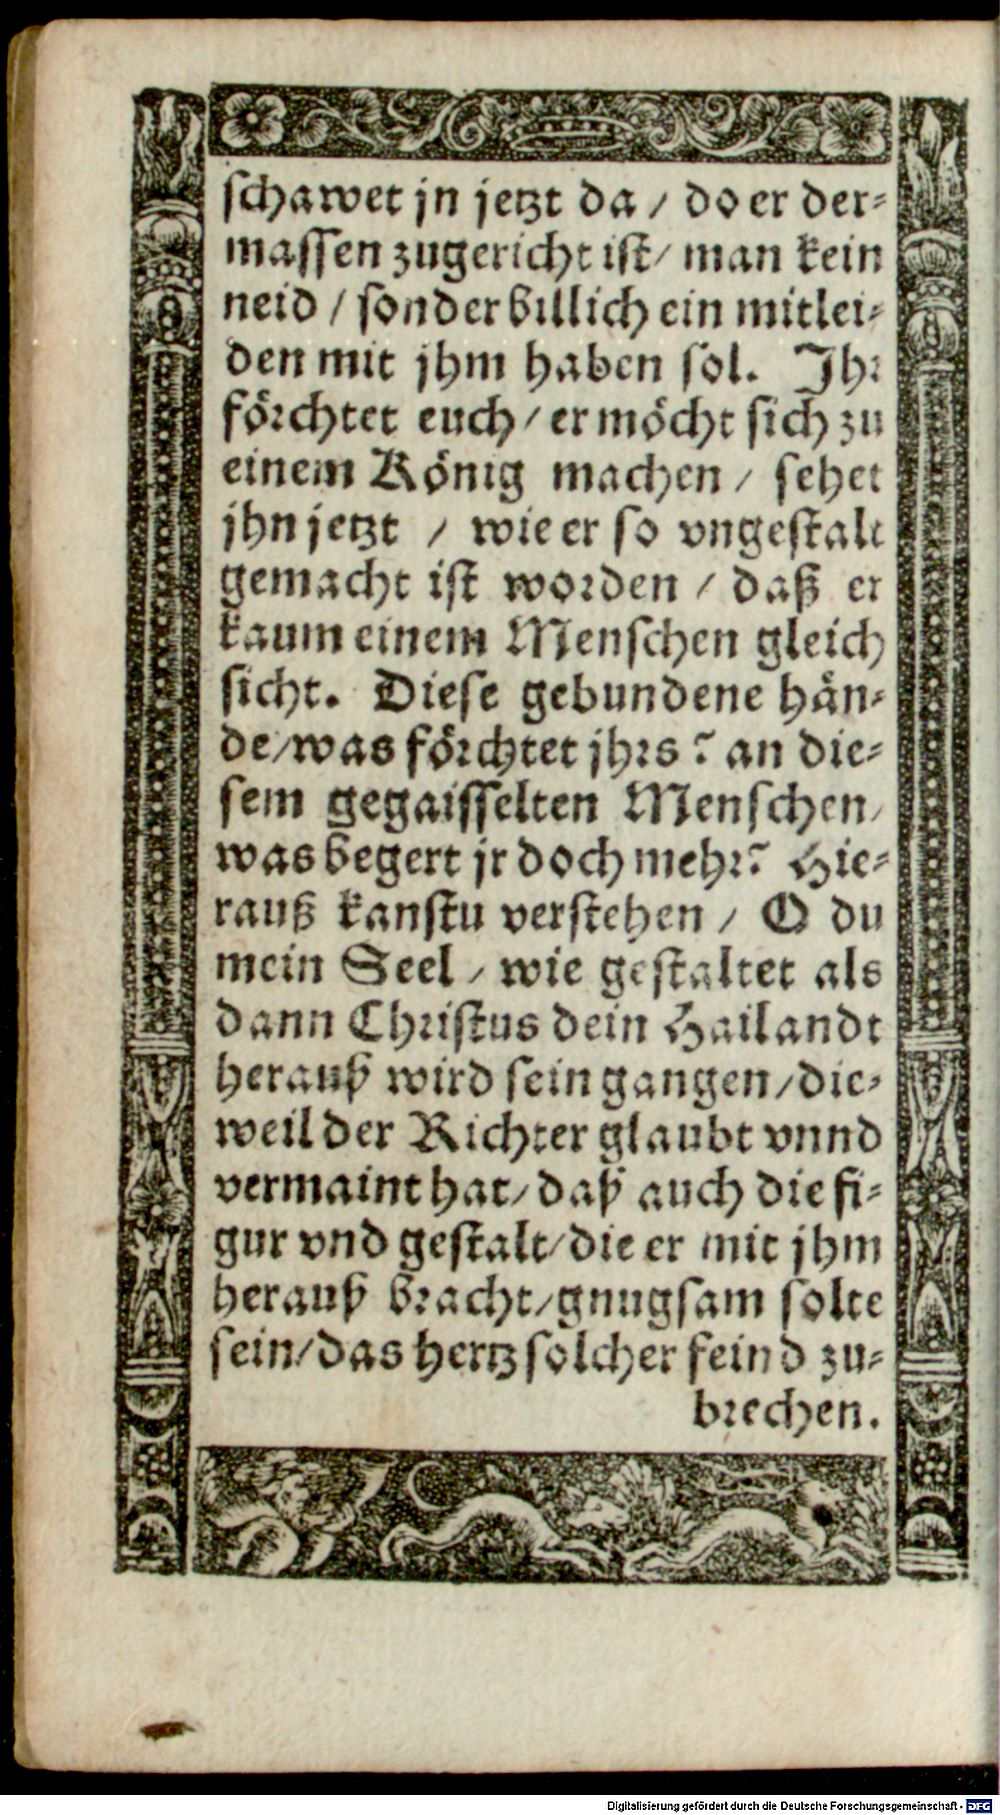 schawet jn jetzt da / do er der-
massen zugericht ist / man kein
neid / sonder billich ein mitlei-
den mit jhm haben sol. Ihr
förchtet euch / er möcht sich zu
einem König machen / sehet
jhn jetzt / wie er so vngestalt
gemacht ist worden / daß er
kaum einem Menschen gleich
sicht. Diese gebundene hän-
de / was förchtet jhrs? an die-
sem gegaisselten Menschen /
was begert jr doch mehr? Hie-
rauß kanstu verstehen / O du
mein Seel / wie gestaltet als
dann Christus dein Hailandt
herauß wird sein gangen / die-
weil der Richter glaubt vnnd
vermaint hat / daß auch die fi-
gur vnd gestalt / die er mit jhm
herauß bracht / gnugsam solte
sein / das hertz solcher feind zu-
brechen.
Digitalisierung gefördert durch die Deutsche Forschungsgemeinschaft - DFG